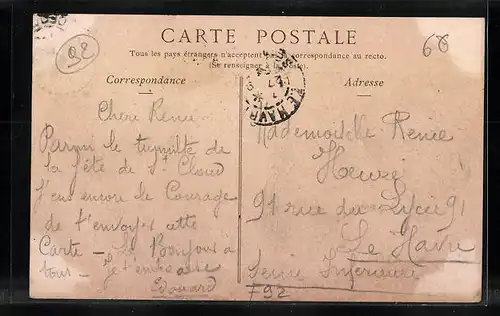 92
CARTE POSTALE
68
Tous les pays étrangers n'acceptent pas la correspondance au recto.
(Se renseigner à la Poste).
Correspondance
Adresse
LE HAVRE
Chère Renée
Parmi le tumulte de
la fête de St Cloud
J'ens encore le Courage
de t'envoyer cette
Carte - Le Bonjour à
tous - Je t'embrasse
Edouard
Mademoiselle Renée
91 rue du Lycée 91
Le Havre
Seine Inférieure
F92